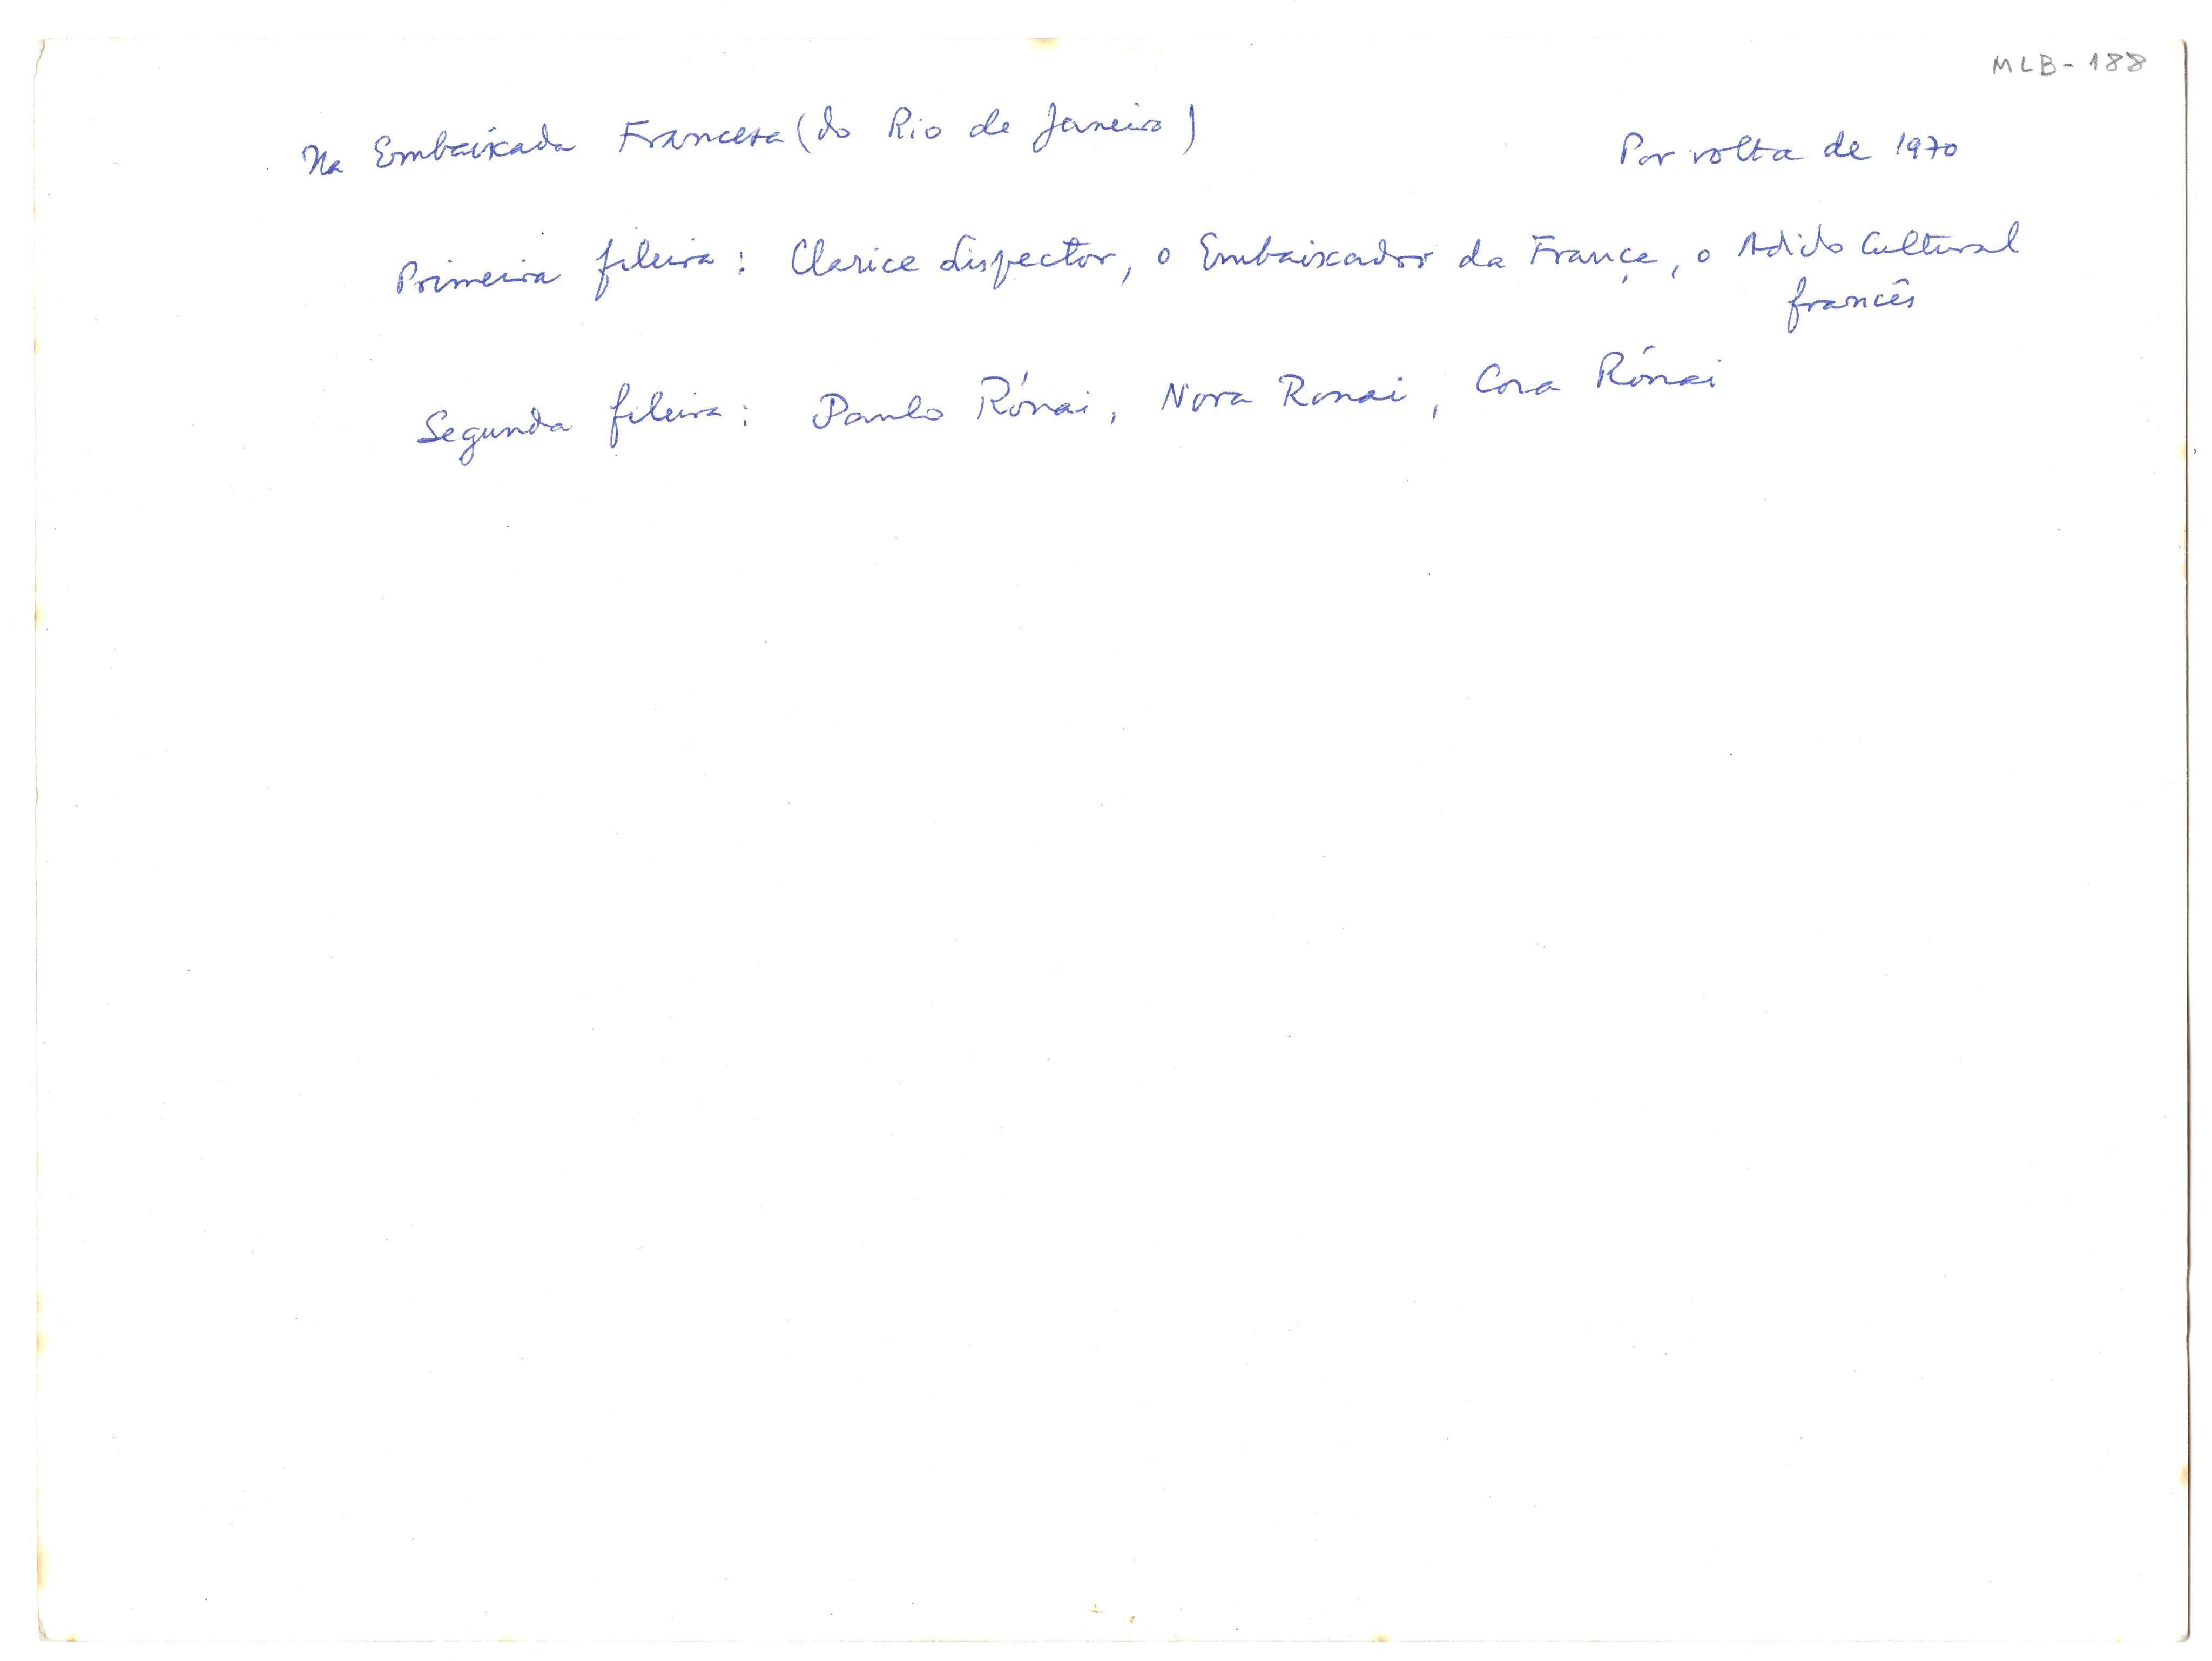 MLB-188
Na Embaixada Francesa (do Rio de Janeiro)
Por volta de 1970
Primeira fileira: Clarice Lispector, o Embaixador da França, o Adido Cultural
francês
Segunda fileira: Paulo Rónai, Nora Ronai, Cora Rónai